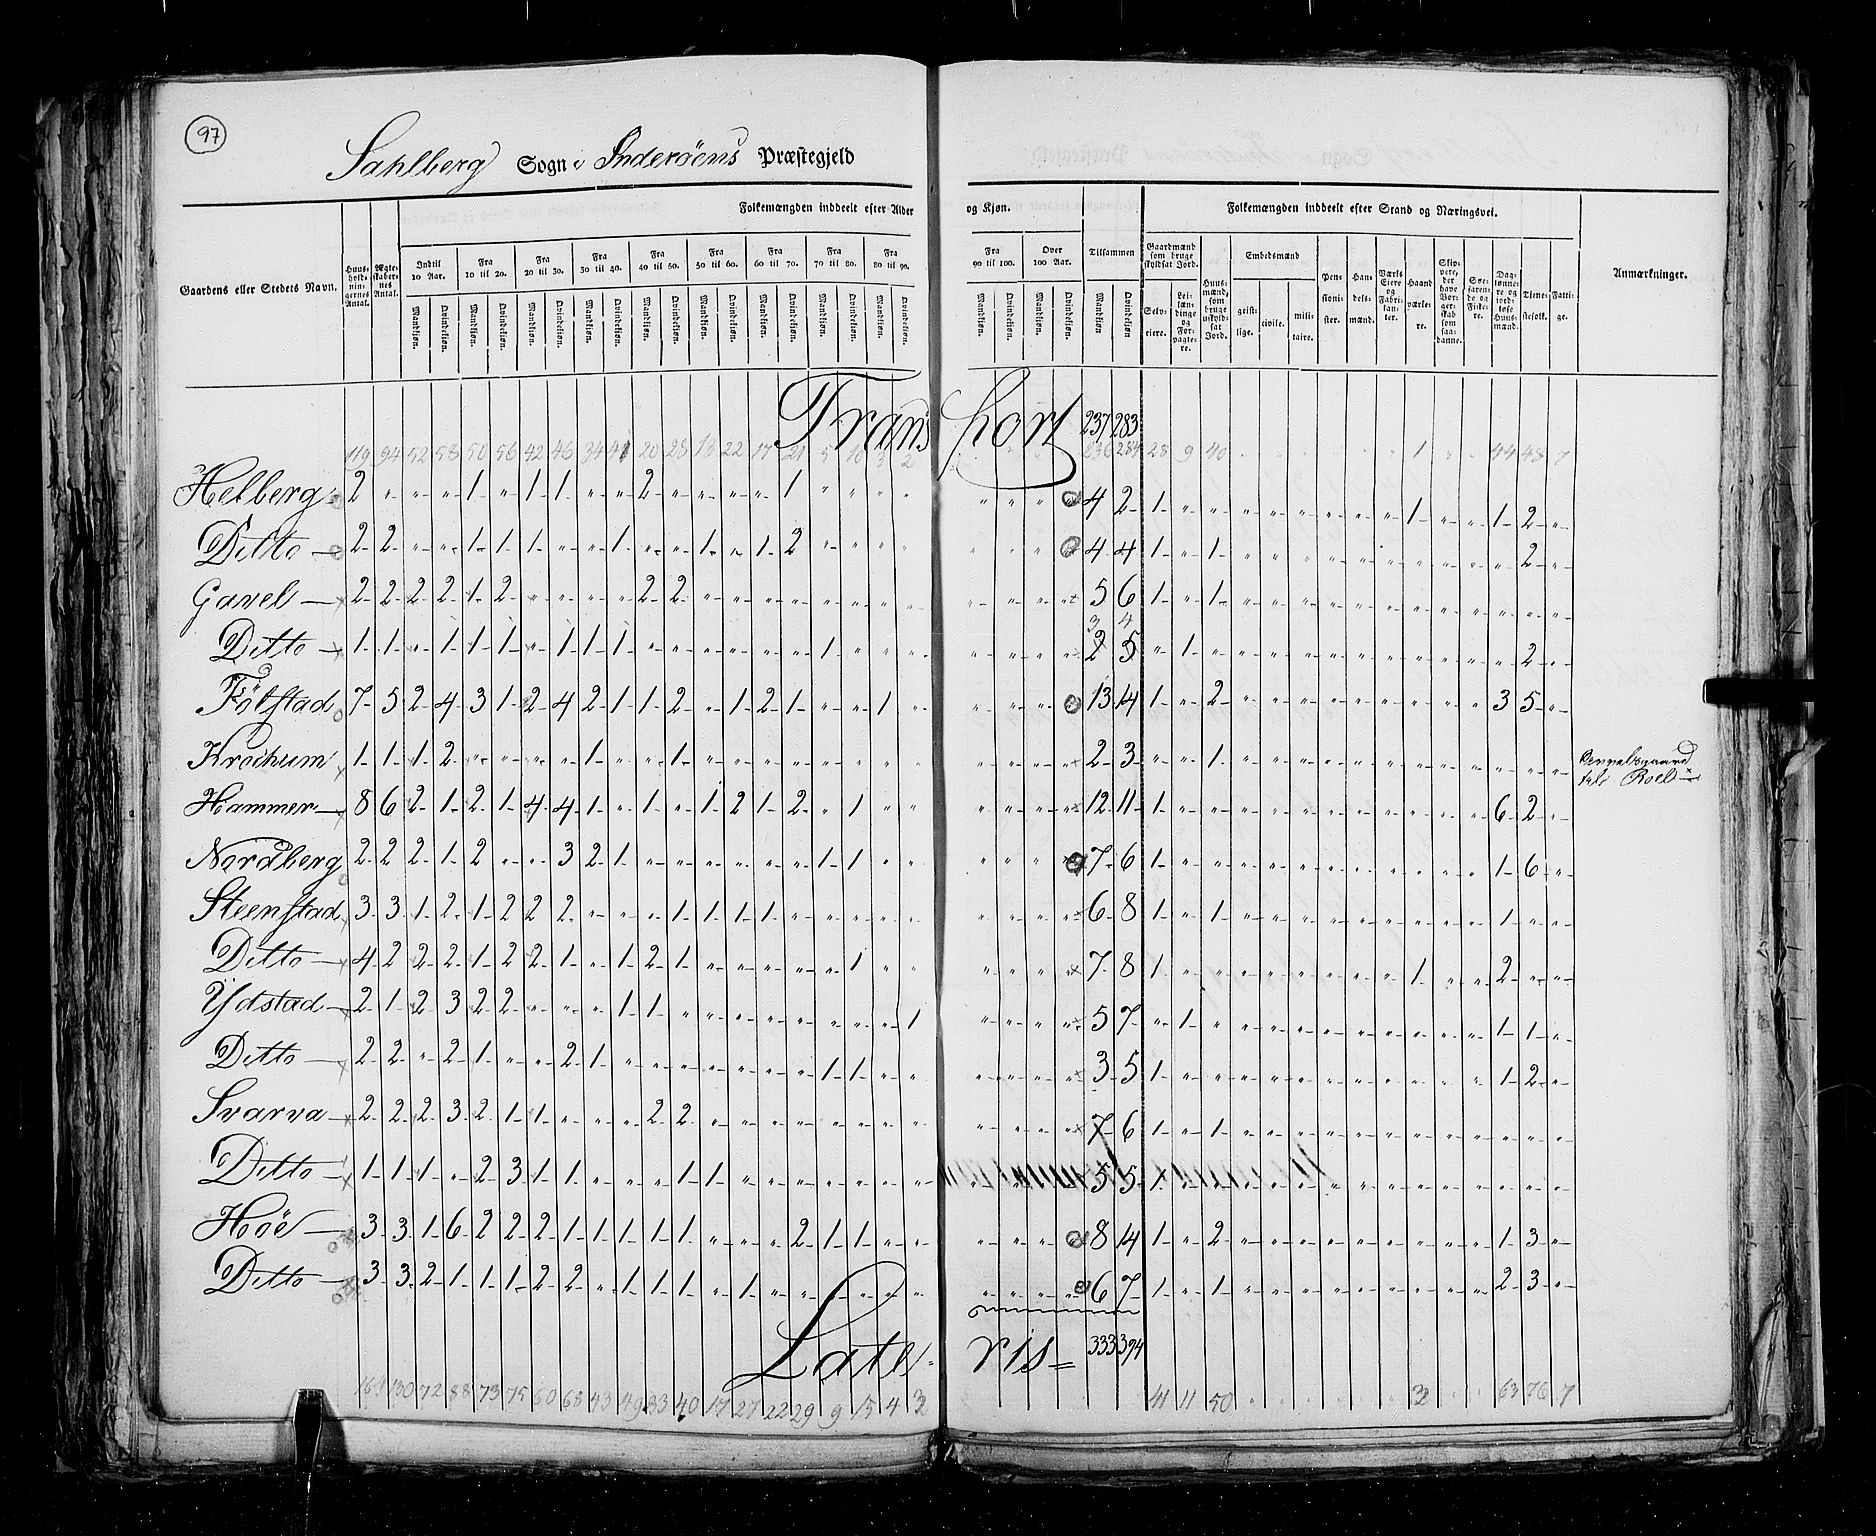 97
Sahlberg Sogn i Inderöens Præstegjeld
Folkemængden inddeelt efter Alder og Kjøn. Folkemængden inddeelt efter Stand og Næringsvei.
Gaardens eller Stedets Navn. Huusholdningernes Antal. Ægteskabernes Antal. Indtil 10 Aar. Fra 10 til 20. Fra 20 til 30. Fra 30 til 40. Fra 40 til 50. Fra 50 til 60. Fra 60 til 70. Fra 70 til 80. Fra 80 til 90. Fra 90 til 100. Over 100 Aar. Tilsammen Gaardmænd som bruge skyldsat Jord. Huusmænd, som bruge uskyldsat Jord. Embedsmænd Pensionister. Handelsmænd. Værks Eiere og Fabrikanter. Haandværkere. Skippere, der have Borgerskab som saadanne. Søefarende og Fiskere. Daglønnere og jordløse Huusmænd. Tjenestefolk. Fattige. Anmærkninger.
Mandkjøn. Qvindekjøn. Mandkjøn. Qvindekjøn. Mandkjøn. Qvindekjøn. Mandkjøn. Qvindekjøn. Mandkjøn. Qvindekjøn. Mandkjøn. Qvindekjøn. Mandkjøn. Qvindekjøn. Mandkjøn. Qvindekjøn. Mandkjøn. Qvindekjøn. Mandkjøn. Qvindekjøn. Mandkjøn. Qvindekjøn. Mandkjøn Qvindekjøn Selveiere. Leilændinge og Forpagtere. geistlige. civile. militaire.
Transport 237 283
119 94 52 58 50 56 42 46 34 41 20 28 13 22 17 21 5 10 3 2 236 284 28 9 40 " " " " " " 1 " " 44 48 7
Helberg 2 " " " 1 " 1 1 " " 2 " " " " 1 " " " " " " " " 4 2 1 " " " " " " " " 1 " " 1 2 "
Ditto 2 2 " " 1 1 1 " " 1 " " 1 " 1 2 " " " " " " " " 4 4 1 " 1 " " " " " " " " " " 2 "
Gavel 2 2 2 2 1 2 " " " " 2 2 " " " " " " " " " " " " 5 6 1 " 1 " " " " " " " " " " " "
3 4
Ditto 1 1 " 1 1 1 " 1 1 1 " " " " " " 1 " " " " " " " 2 5 " 1 " " " " " " " " " " " 2 "
Fölstad 7 5 2 4 3 1 2 4 2 1 1 2 " 1 2 1 " " 1 " " " " " 13 14 1 " 2 " " " " " " " " " 3 5 "
Krochum 1 1 1 2 " " " " 1 " " 1 " " " " " " " " " " " " 2 3 " " 1 " " " " " " " " " " " " Roel
Hammer 8 6 2 1 2 1 4 4 1 " 1 " 1 2 1 2 " 1 " " " " " " 12 11 1 " " " " " " " " " " " 6 2 "
Nordberg 2 2 2 1 2 " " 3 2 1 " " " " " " 1 1 " " " " " " 7 6 1 " " " " " " " " " " " 1 6 "
Steenstad 3 3 1 2 1 2 2 2 " " " 1 1 1 1 " " " " " " " " " 6 8 1 " 1 " " " " " " " " " 1 " "
Ditto 4 2 2 2 1 2 2 1 " 1 2 1 " " " " " 1 " " " " " " 7 8 1 " " " " " " " " 1 " " 2 " "
Ydstad 2 1 2 3 2 2 " " " 1 1 " " " " " " " " 1 " " " " 5 7 " 1 " " " " " " " " " " 1 1 "
Ditto 2 2 " 2 1 " " 2 1 " " " " " " " 1 1 " " " " " " 3 5 1 " " " " " " " " " " " 1 2 "
Svarva 2 2 2 3 2 1 1 " " " 2 2 " " " " " " " " " " " " 7 6 1 " 1 " " " " " " " " " " " "
Ditto 1 1 1 " 2 3 1 1 " " " 1 1 " " " " " " " " " " " 5 5 1 " " " " " " " " " " " " " "
Höe 3 3 1 6 2 2 2 1 1 1 1 1 " " " 2 1 1 " " " " " " 8 14 1 " 2 " " " " " " " " " 1 3 "
Ditto 3 3 2 1 1 1 2 2 " 1 1 1 " 1 " " " " " " " " " " 6 7 1 " 1 " " " " " " " " " 2 3 "
Lateris 333 394
164 130 72 88 73 75 60 68 43 49 33 40 17 27 22 29 9 15 4 3 41 11 50 3 63 76 7